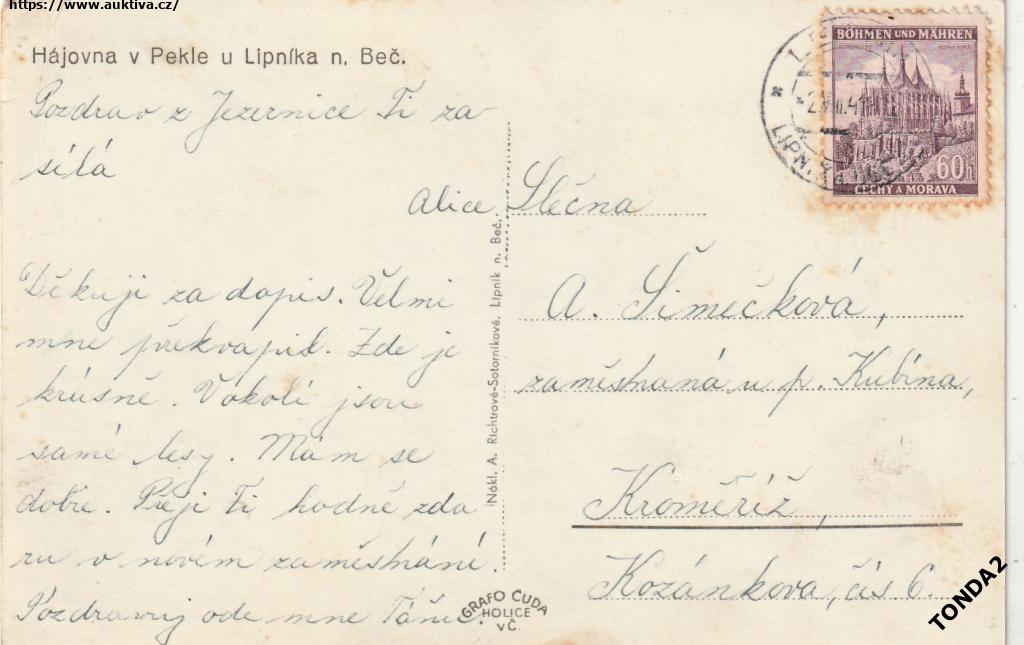 https://www.auktiva.cz/
Hájovna v Pekle u Lipníka n. Beč.
Pozdrav z Jezernice Ti za
sílá
Alice.
Děkuji za dopis. Velmi
mne překvapil. Zde je
krásně. V okolí jsou
samé lesy. Mám se
dobře. Přeji Ti hodně zda
ru v novém zaměstnání.
Pozdravuj ode mne
Nákl. A. Richtrové-Sotorníkové, Lipník n. Beč.
GRAFO ČUDA
HOLICE
v Č.
BÖHMEN UND MÄHREN
60h
ČECHY A MORAVA
Slečna
A. Šimečková,
zaměstnaná u p. Kubína,
Kroměříž,
Kozánkova, čís 6.
TONDA2